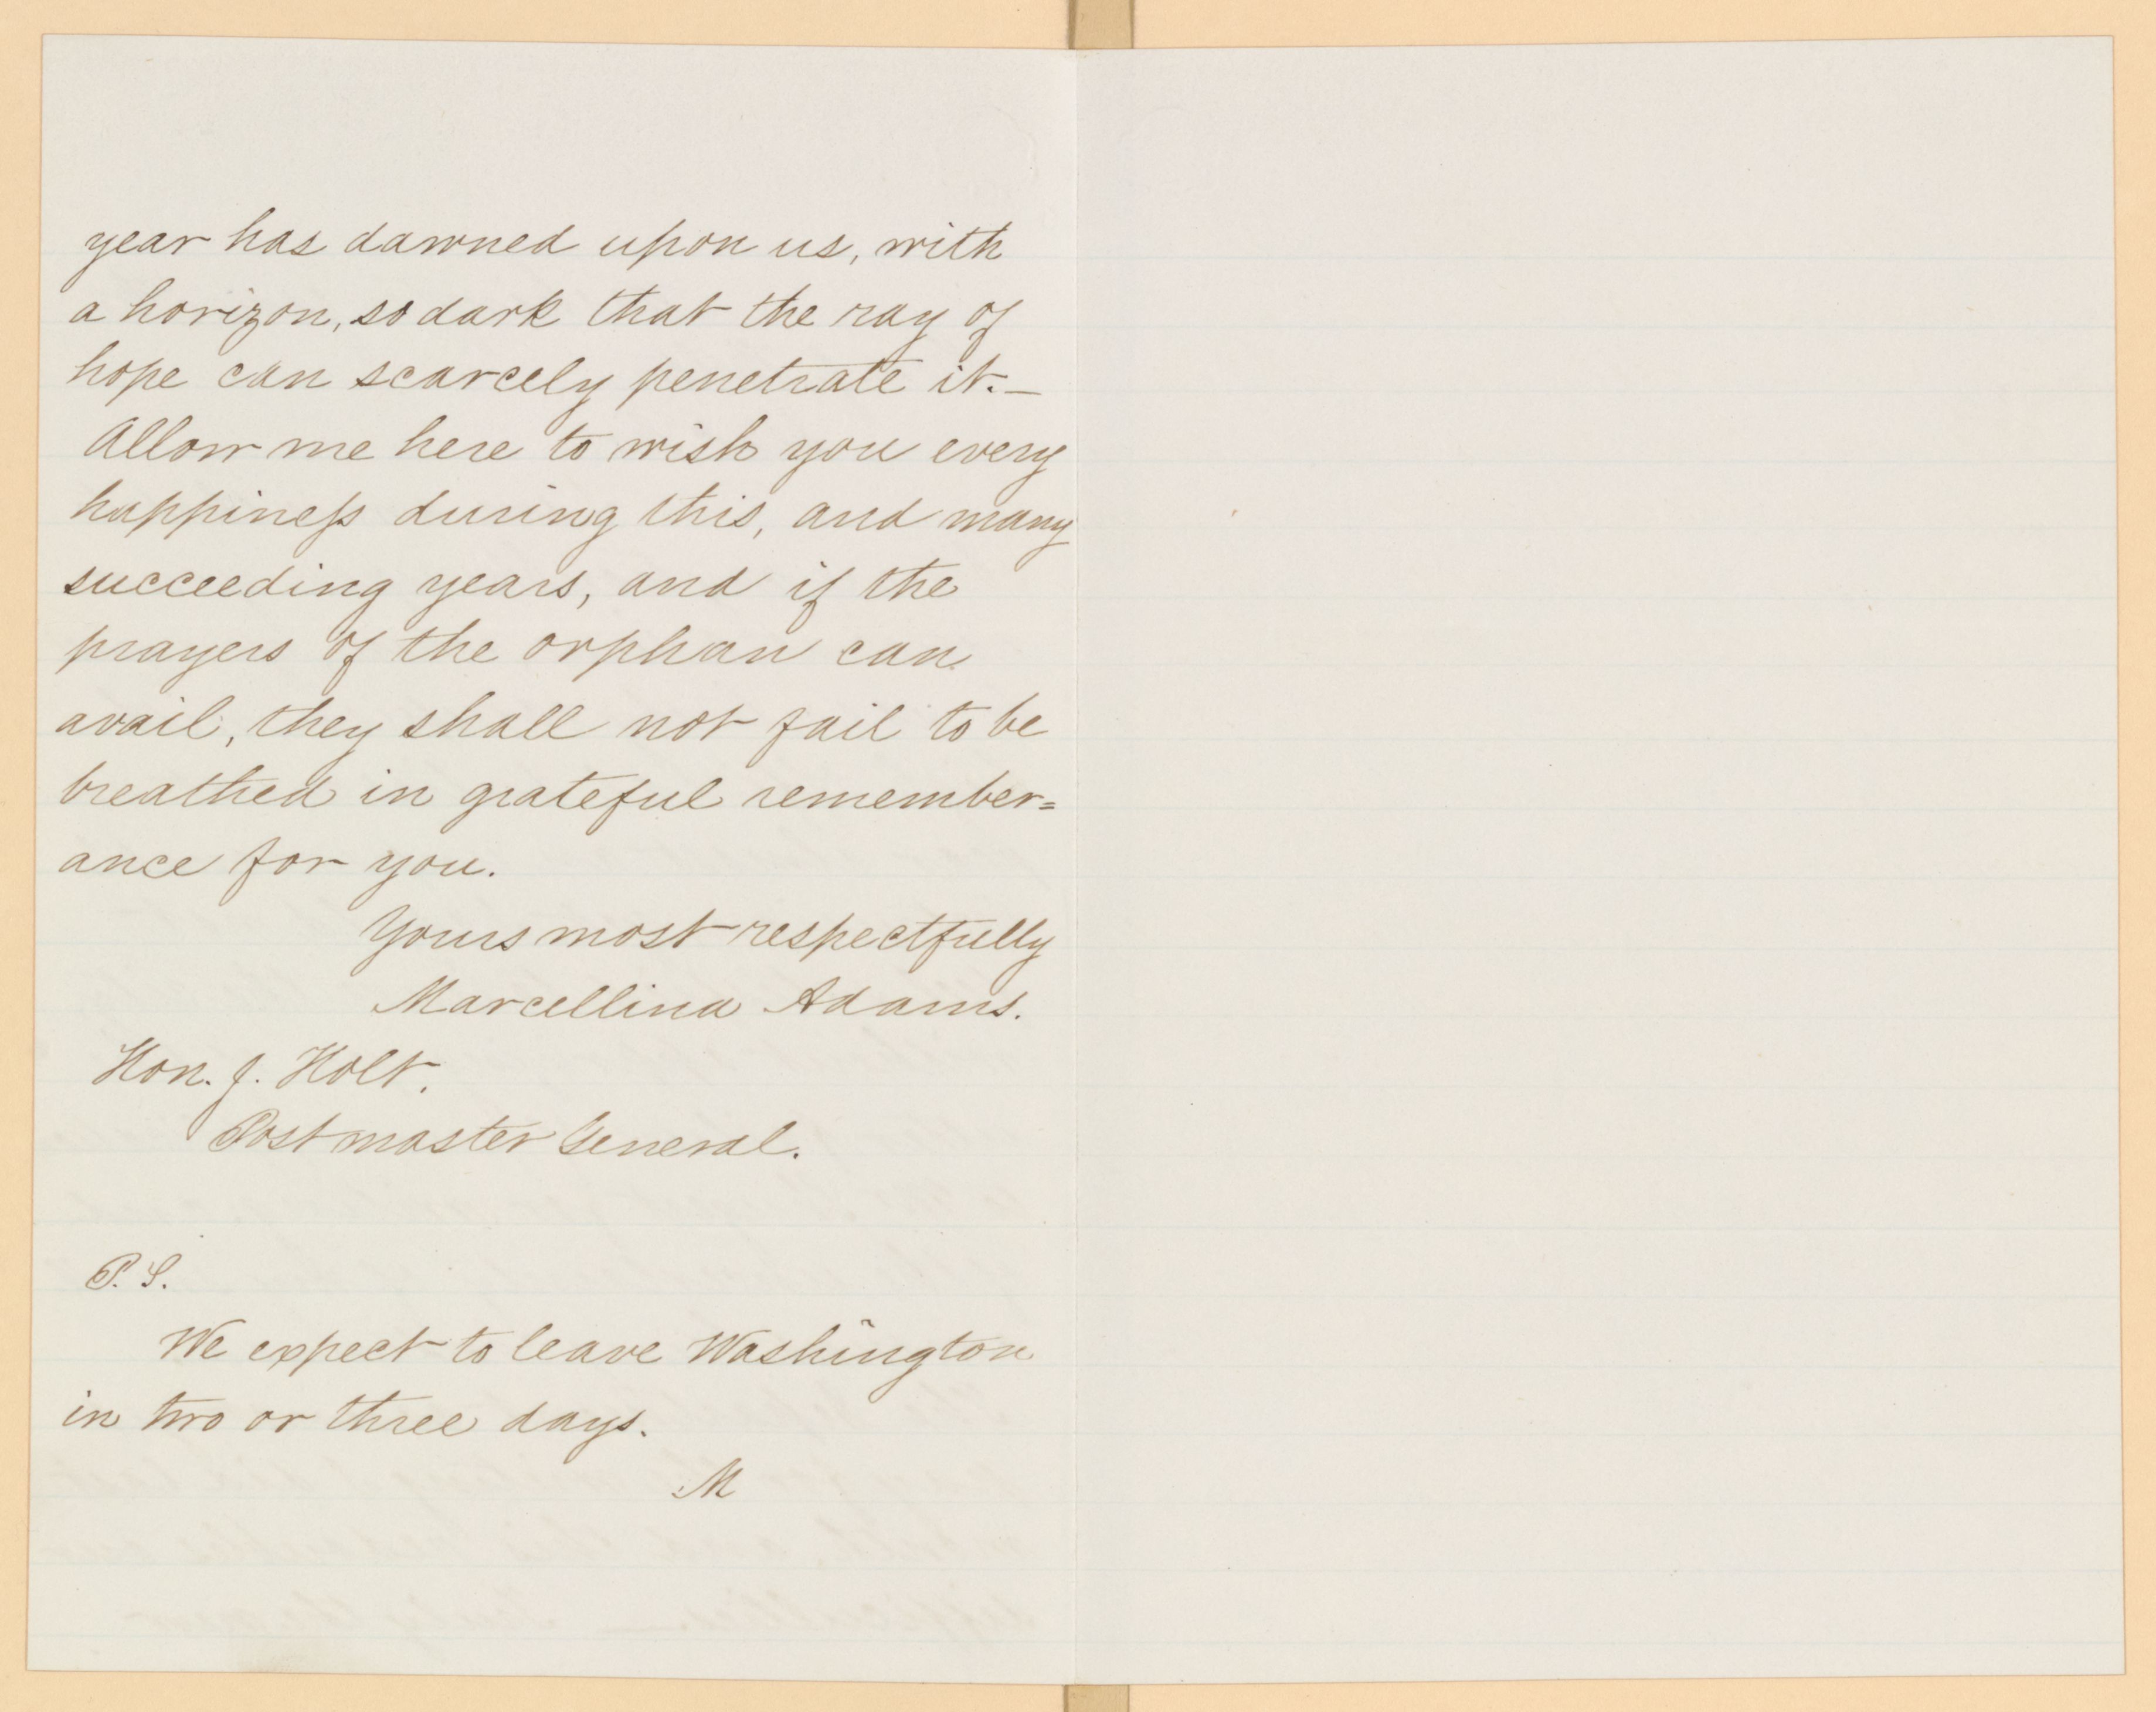 year has dawned upon us, with
a horizon, so dark that the ray of
hope can scarcely penetrate it.—
Allow me here to wish you every
happiness during this, and many
succeeding years, and if the
prayers of the orphan can
avail, they shall not fail to be
breathed in grateful remember=
ance for you.
Yours most respectfully
Marcellina Adams.
Hon. J. Holt.
Postmaster General.
P.S.
We expect to leave Washington
in two or three days.
M